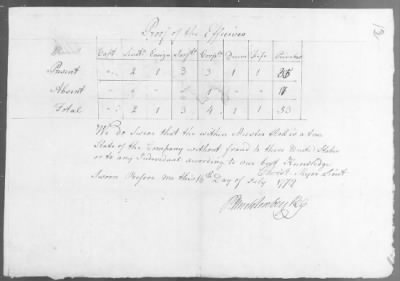 Proof of the Effectives
Capt Lieuts Ensign Serjts Corpls Drum Fife Privates
Present 2 1 3 3 1 1
Absent 1
Total 2 1 3 4 1 1 33
We do Swear that the within Muster Roll is a true
State of the Company without fraud to these United States
or to any Individual according to our best Knowledge
Lieut
Sworn Before me this 16th Day of July 1778